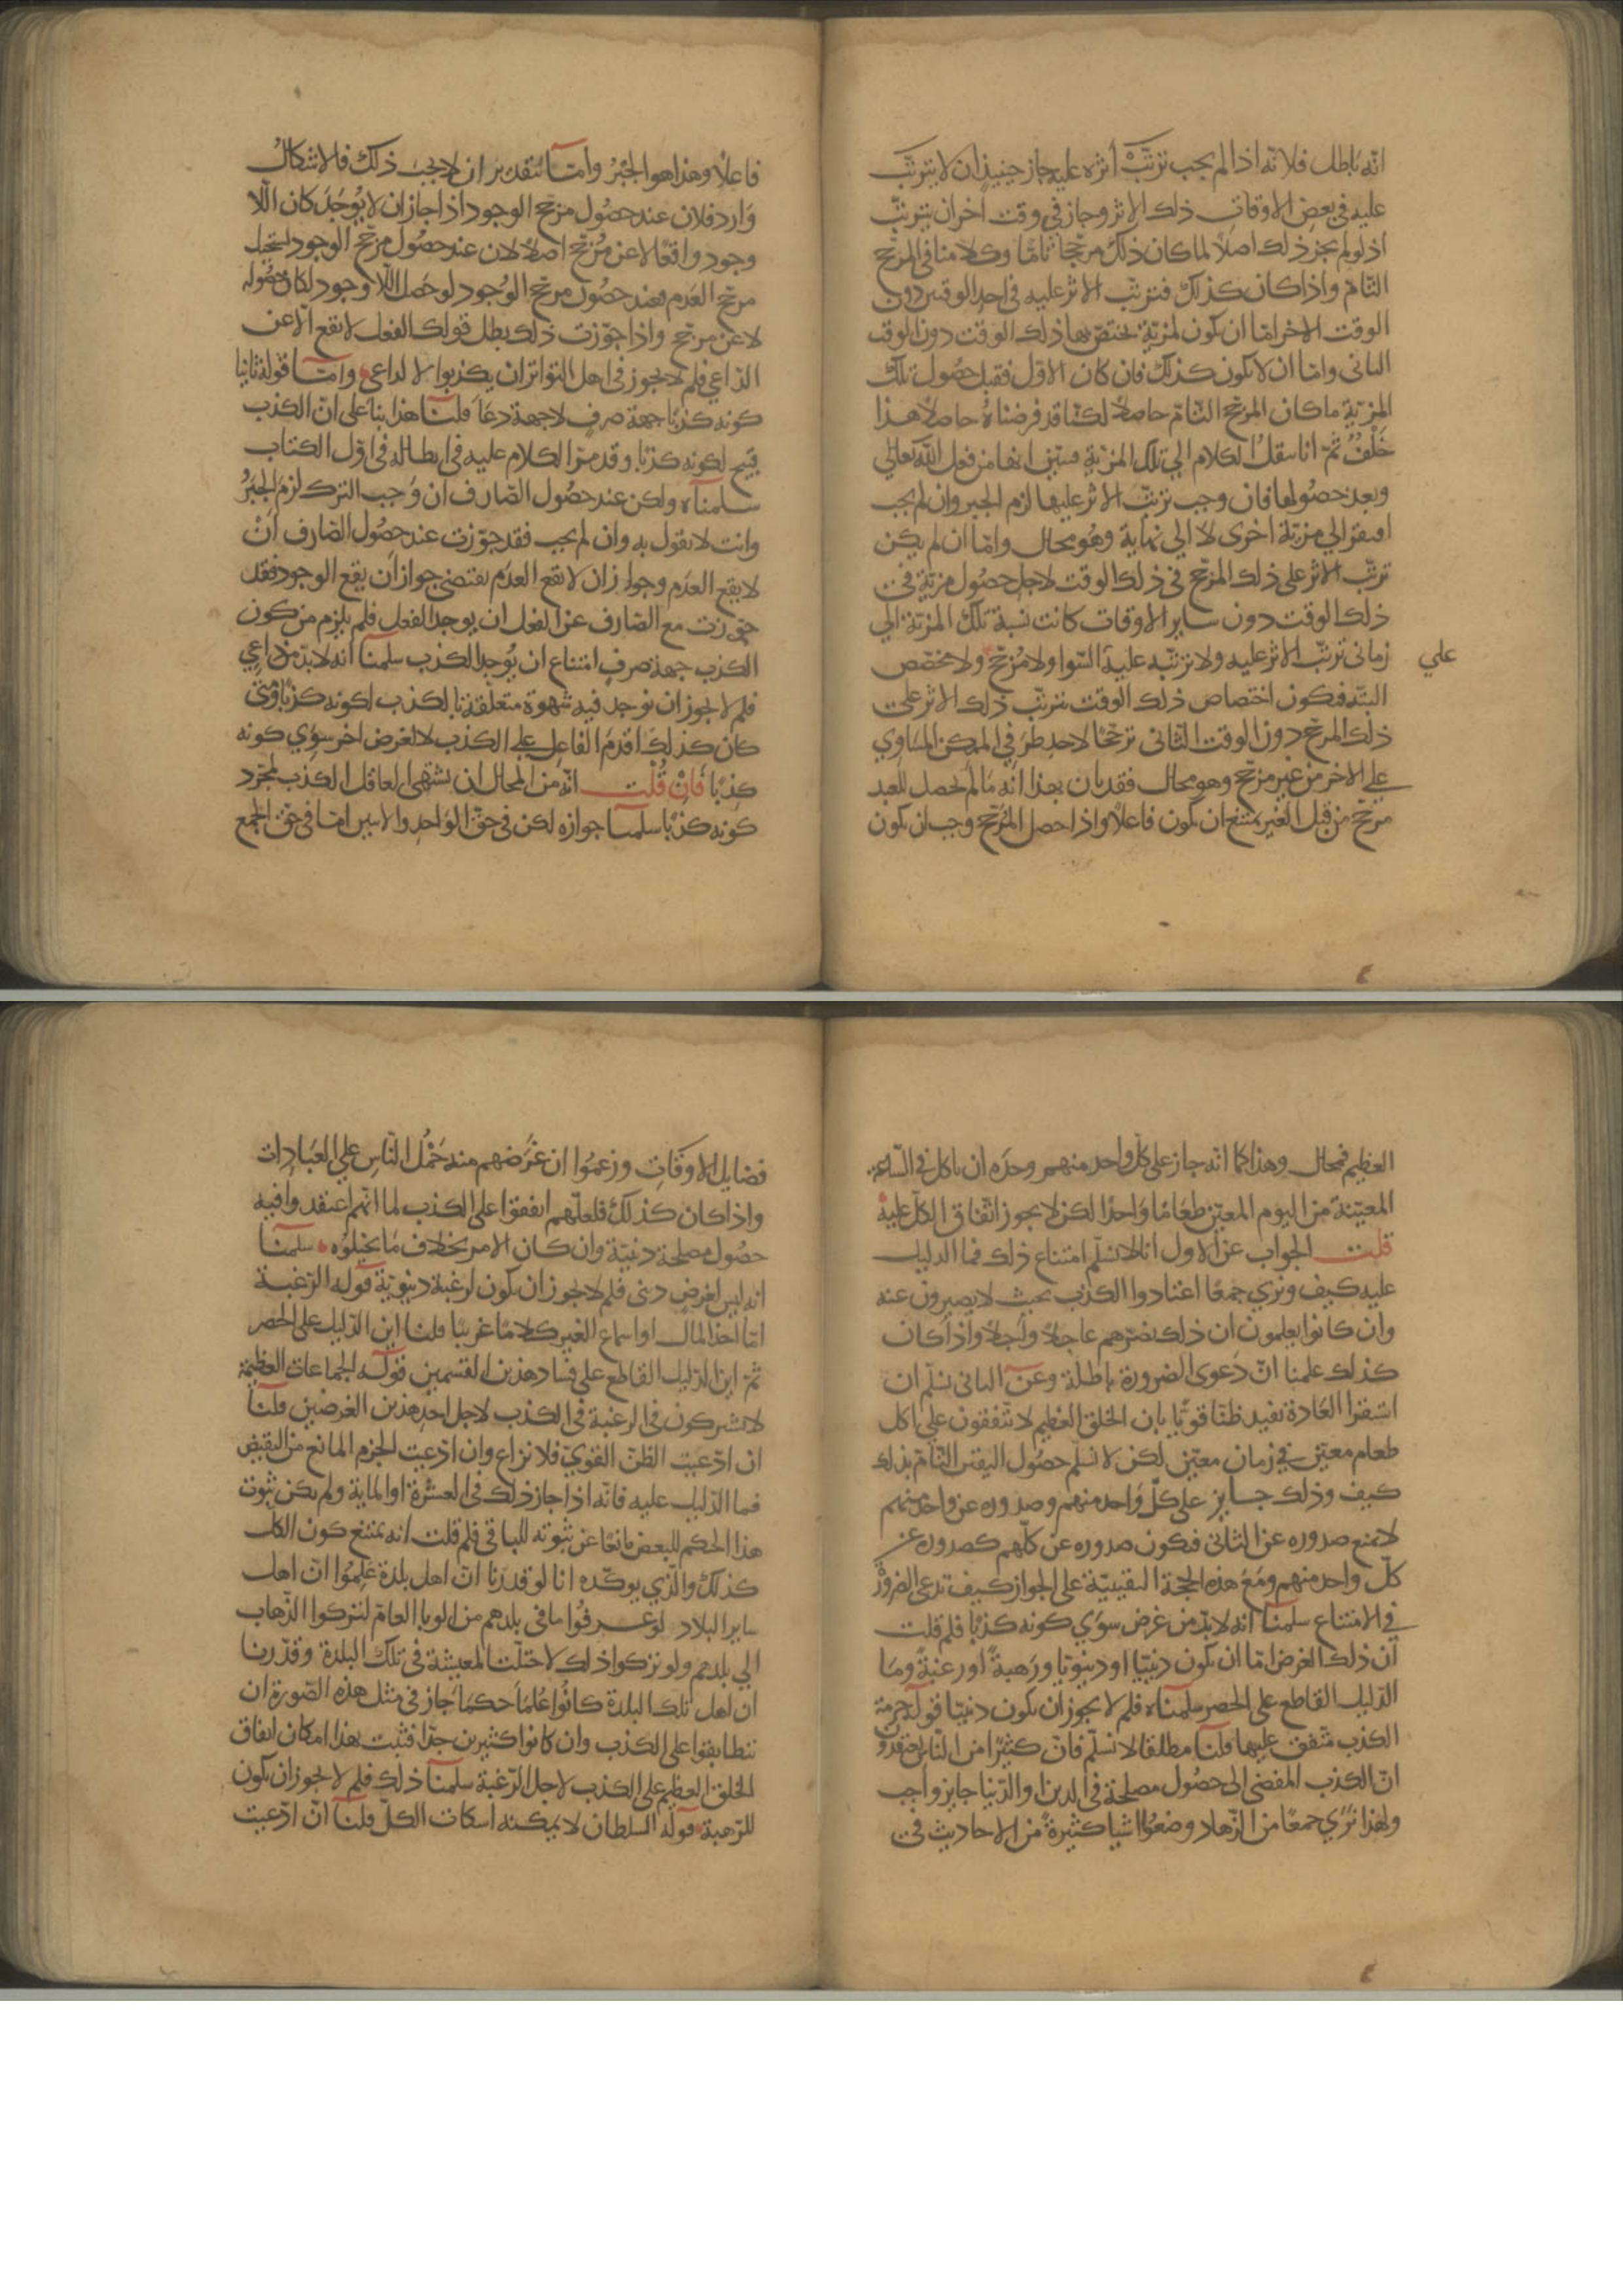 انّه باطل فلانّه اذا لم يجب ترتّب أثره عليه جاز حينيذ ان لا يترتّب
عليه في بعض الاوقات ذلك الاثر وجاز في وقت اخر ان يترتّب
اذ لو لم يجز ذلك اصلا لما كان ذلك مرجحا تامّا وكلامنا في المرجّح
التّام واذا كان كذلك فترتّب الاثر عليه في احد الوقتين دون
الوقت الاخر امّا ان يكون لمزيّة يختصّ بها ذلك الوقت دون الوقت
الثاني وامّا ان لا يكون كذلك فان كان الاوّل فقبل حصول تلك
المزيّة ما كان المرجح التّام حاصلا لكنّا قد فرضناه حاصلا هذا
خلف ثمّ انا ننقل الكلام الي تلك المزية فنبين انها من فعل اللّه تعالي
وبعد حصولها فان وجب ترتّب الاثر عليها لزم الجبر وان لم يجب
افتقر الي مزيّة اخرى لا الي نهاية وهو محال وامّا ان لم يكن
ترتّب الاثر على ذلك المرجّح في ذلك الوقت لاجل حصول مزيّة في
ذلك الوقت دون ساير الاوقات كانت نسبة تلك المزيّة الي
زماني ترتّب الاثر عليه ولا ترتّبه عليه السّوا ولا مرجّح ولا مخصّص
علي
البتّه فيكون اختصاص ذلك الوقت بترتّب ذلك الاثر على
ذلك المرجّح دون الوقت الثّاني ترجحا لاحد طرفي الممكن المساوي
علي الاخر من غير مرجّح وهو محال فقد بان بهذا انّه ما لم يحصل للعبد
مرجّح من قبل الغير يمتنع ان يكون فاعلا واذا حصل المرجّح وجب ان يكون
فاعلا وهذا هو الجبر وامّا بتقدير ان لا يجب ذلك فالاشكال
وارد فلان عند حصول مرجّح الوجود اذا جاز ان لا يوجد كان اللا
وجود واقعا لا عن مرجّح اصلا لان عند حصول مرجّح الوجود يستحيل
مرجّح العدم فعند حصول مرجّح الوجود لو حصل اللّا وجود لكان حصوله
لا عن مرجّح واذا جوّزت ذلك بطل قولك الفعل لا يقع الّا عن
الدّاعي فلم لا يجوز في اهل التواتر ان يكذبوا لا لداعي وامّا قوله ثانيا
كونه كذبا جهة صرف لا جهة دعا قلنا هذا بنا على انّ الكذب
قبيح لكونه كذبا وقد مرّ الكلام عليه في ابطاله في اوّل الكتاب
سلمناه ولكن عند حصول الصّارف ان وجب الترك لزم الجبر
وانت لا تقول به وان لم يجب فقد جوّزت عند حصول الصّارف ان
لا يقع العدم وجواز ان لا يقع العدم يقتضي جواز ان يقع الوجود فقد
جوّزت مع الصّارف عن الفعل ان يوجد الفعل فلم يلزم من كون
الكذب جهة صرف امتناع ان يوجد الكذب سلمنا انه لا بدّ من داعي
فلم لا يجوز ان توجد فيه شهوة متعلّقة بالكذب لكونه كذبا ومتى
كان كذلك اقدم الفاعل علي الكذب لا لغرض اخر سوي كونه
كذبا فان قلت انّه من المحال ان يشتهي العاقل الكذب لمجرّد
كونه كذبا سلمنا جوازه لكن في حقّ الواحد والاثنين امّا في حقّ الجمع
العظيم فمحال وهذا كما انّه جاز على كلّ واحد منهم وحده ان ياكل في السّاعة
المعيّنة من اليوم المعيّن طعاما واحدا لكن لا يجوز اتّفاق الكلّ عليه
قلت الجواب عن الاول انا لا نسلّم امتناع ذلك فما الدليل
عليه كيف ونري جمعا اعتادوا الكذب بحيث لا يصبرون عنه
وان كانوا يعلمون ان ذلك يضرّهم عاجلا وآجلا واذا كان
كذلك علمنا انّ دعوى الضرورة باطلة وعن الثاني نسلّم ان
استقرا العادة تفيد ظنّا قويّا بان الخلق العظيم لا يتّفقون على اكل
طعام معيّن في زمان معيّن لكن لا نسلّم حصول اليقين التّام بذلك
كيف وذلك جايز على كلّ واحد منهم وصدوره عن واحد منهم
لا يمنع صدوره عن الثاني فيكون صدوره عن كلّهم كصدوره عن
كلّ واحد منهم ومع هذه الحجة اليقينيّة على الجواز كيف تدعى الضرورة
في الامتناع سلمنا انه لا بدّ من غرض سوي كونه كذبا فلم قلت
انّ ذلك الغرض امّا ان يكون دينيّا او دنيويّا ورهبةً او رغبةً وما
الدّليل القاطع على الحصر سلمناه فلم لا يجوز ان يكون دينيّا قوله حرمة
الكذب متّفق عليها قلنا مطلقا لا نسلّم فانّ كثيرا من النّاس يعتقدون
انّ الكذب المفضي الى حصول مصلحة في الدين والدّنيا جايز واجب
ولهذا نري جمعا من الزّهاد وضعوا اشيا كثيرة من الاحاديث في
فضايل الاوقات وزعموا ان غرضهم منه حمل النّاس علي العبادات
واذا كان كذلك فلعلّهم اتفقوا على الكذب لما انّهم اعتقدوا فيه
حصول مصلحة دينيّة وان كان الامر بخلاف ما يخيلوه سلمنا
انه ليس لغرض ديني فلم لا يجوز ان يكون لرغبة دنيويّة قوله الرّغبة
امّا اخذ المال او اسماع الغير كلاما غريبا قلنا اين الدّليل على الحصر
ثمّ اين الدّليل القاطع على فساد هذين القسمين قوله الجماعات العظيمة
لا يشتركون في الرغبة في الكذب لاجل احد هذين الغرضين قلنا
ان ادّعيت الظّن القويّ فلا نزاع وان ادّعيت الجزم المانع من النقيض
فما الدّليل عليه فانّه اذا جاز ذلك في العشرة او الماية ولم يكن ثبوت
هذا الحكم للبعض مانعا عن ثبوته للباقي فلم قلت انه يمتنع كون الكل
كذلك والّذي يوكّده انا لو قدرنا انّ اهل بلدة علموا انّ اهل
ساير البلاد لو عرفوا ما في بلدهم من الوبا العامّ لتركوا الذّهاب
الي بلدهم ولو تركوا ذلك لاختلّت المعيشة في تلك البلدة وقدّرنا
ان اهل تلك البلدة كانوا علما حكما جاز في مثل هذه الصّورة ان
يتطابقوا على الكذب وان كانوا كثيرين جدّا فثبت بهذا امكان اتفاق
الخلق العظيم على الكذب لاجل الرّغبة سلمنا ذلك فلم لا يجوز ان يكون
للرّهبة قوله السلطان لا يمكنه اسكات الكلّ قلنا انّ ادّعيت